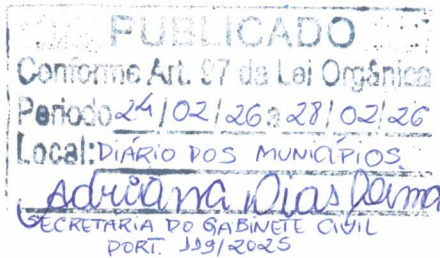 PUBLICADO
Conforme Art. 97 da Lei Orgânica
Período 24/02/26 a 28/02/26
Local: DIÁRIO DOS MUNICÍPIOS
Adriana Dias
SECRETARIA DO GABINETE CIVIL
PORT. 119/2025